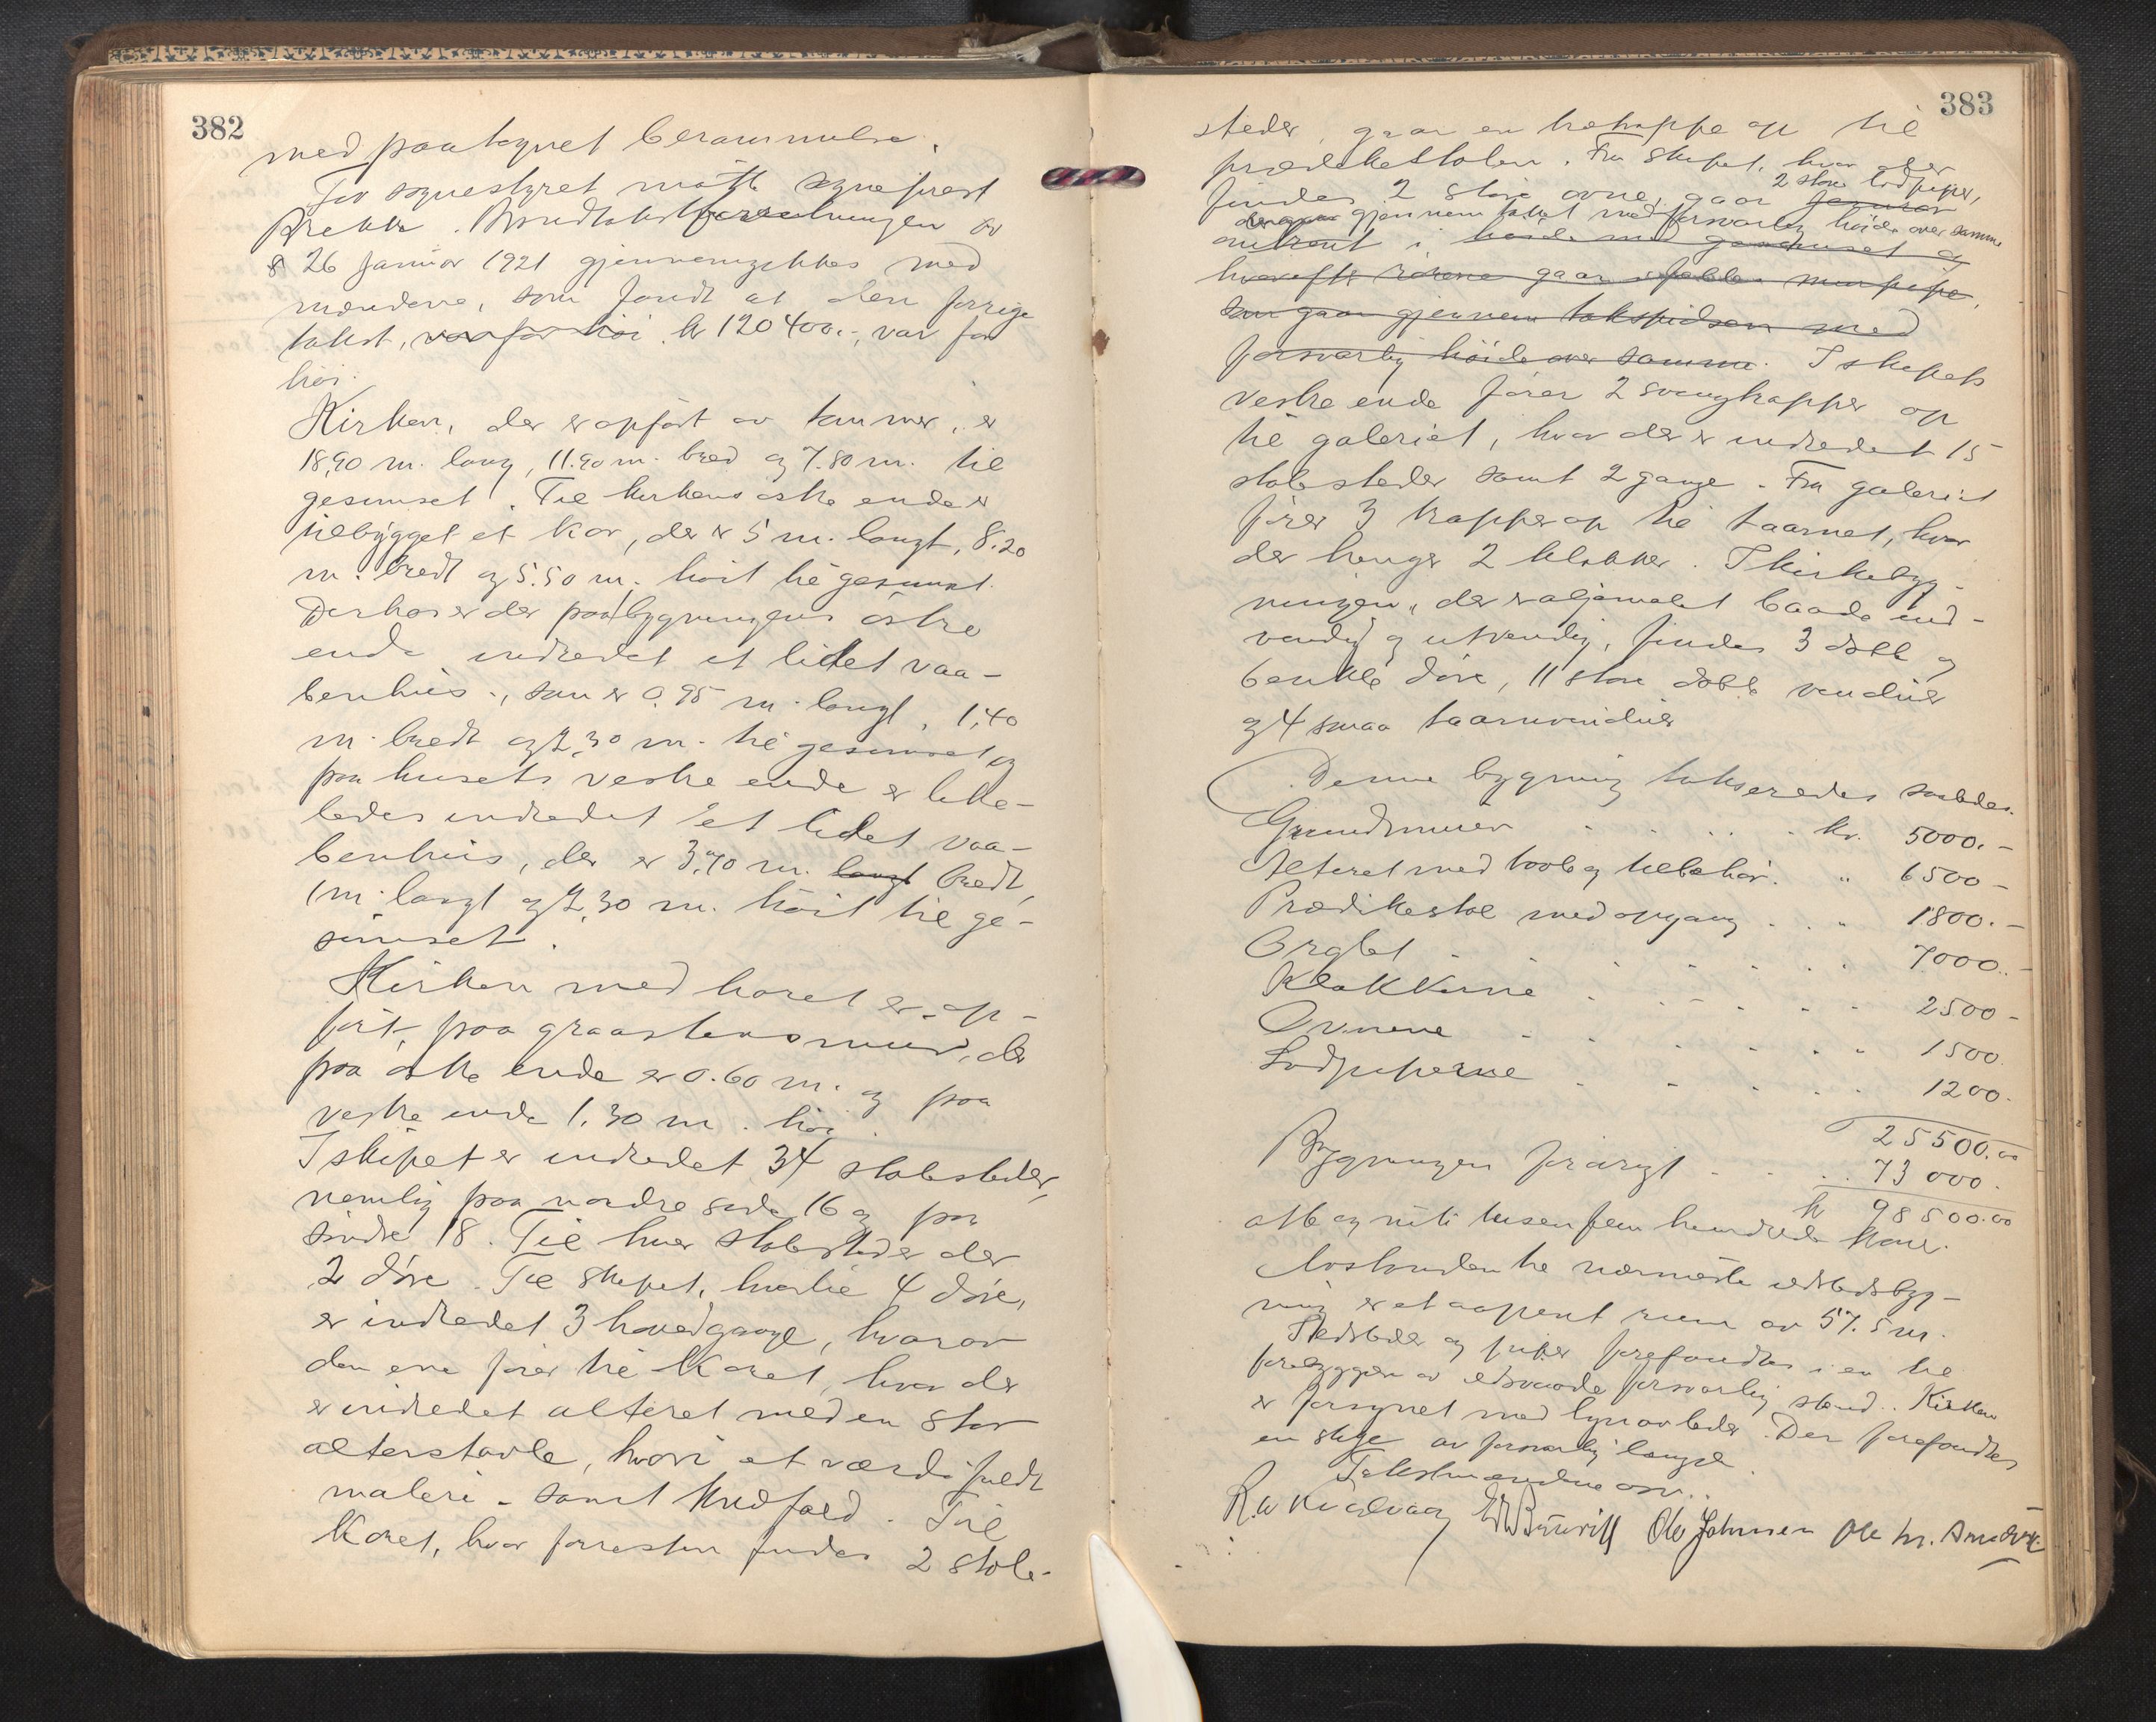 382
med paategnet berammelse.
For sognestyret møtte sogneprest
Brekke. Brandtakstforretningen av
8 26 januar 1921 gjennemgikkes med
mændene, som fandt at den forrige
takst, var for høi kr 120400.-, var for
høi.
Kirken, der er opført av tømmer, er
18,90 m. lang, 11.90 m. bred og 7.80 m. til
gesimset. Til kirkens østre ende er
tilbygget et kor, der er 5 m. langt, 8.20
m. bredt og 5.50 m. høit til gesimset.
Derhos er der paa bygningens østre
ende indredet et litet vaa-
benhus, som er 0.95 m. langt, 1,40
m. bredt og 2,30 m. til gesimset og
paa husets vestre ende er like-
ledes indredet et litet vaa-
benhus, der er 3,70 m. langt bredt,
1 m. langt og 2,30 m. høit til ge-
simset.
Kirken med koret er op-
ført paa graastensmur, der
paa østre ende er 0.60 m. og paa
vestre ende 1,30 m. høi.
I skipet er indredet 34 stolesteder,
nemlig paa nordre side 16 og paa
søndre 18. Til hver stolested er der
2 døre. Til skipet, hvortil 4 døre,
er indredet 3 hovedgange, hvorav
den ene fører til koret, hvor der
er indredet alteret med en stor
altertavle, hvori et værdifuldt
maleri - samt knæfald. Til
Koret, hvor forresten findes 2 stole-
383
steder, gaar en trætrappe op til
prædikestolen. Fra skipet, hvor der
findes 2 store ovne, gaar 2 store lodpiper,
der gaar gjennem taket med forsvarlig høide over samme
omtrent i høide med gesimset og
hvorefter rørene gaar i fælles murpipe,
som gaar gjennem takspidsen med
forsvarlig høide over samme. I skipets
vestre ende fører 2 svengtrapper op
til galeriet, hvor der er indredet 15
stolesteder samt 2 gange. Fra galeriet
fører 3 trapper op til taarnet, hvor
der henger 2 klokker. I kirkebyg-
ningen, der er oljemalet baade ind-
vendig og utvendig, findes 3 dobb og
6 enkle døre, 11 store dobb vinduer
og 4 smaa taarnvinduer
Denne bygning takseredes saaledes.
Grundmuren . . . . . kr. 5000.-
Alteret med tavle og tilbehør. " 6500-
Prædikestol med opgang . . " 1800.-
Orglet . . . . . . 7000.-
Klokkerne . . . . . . 2500-
Ovnene . . . . . . 1500.
Lodpiperne . . . . . 1200.
25500.00
Bygningen forøvrigt . . . 73000.
kr 98500.00
otte og nitti tusen fem hundrede kroner.
Avstanden til nærmeste ildstedsbyg-
ning er et aapent rum av 57.5 m.
Ildsteder og piper forefandtes i en til
forebyggen av ildsvaade forsvarlig stand. Kirken
er forsynet med lynavleder. Der forefandtes
en stige av forsvarlig længde.
Takstmændene
Ole Johnsen Ole M.